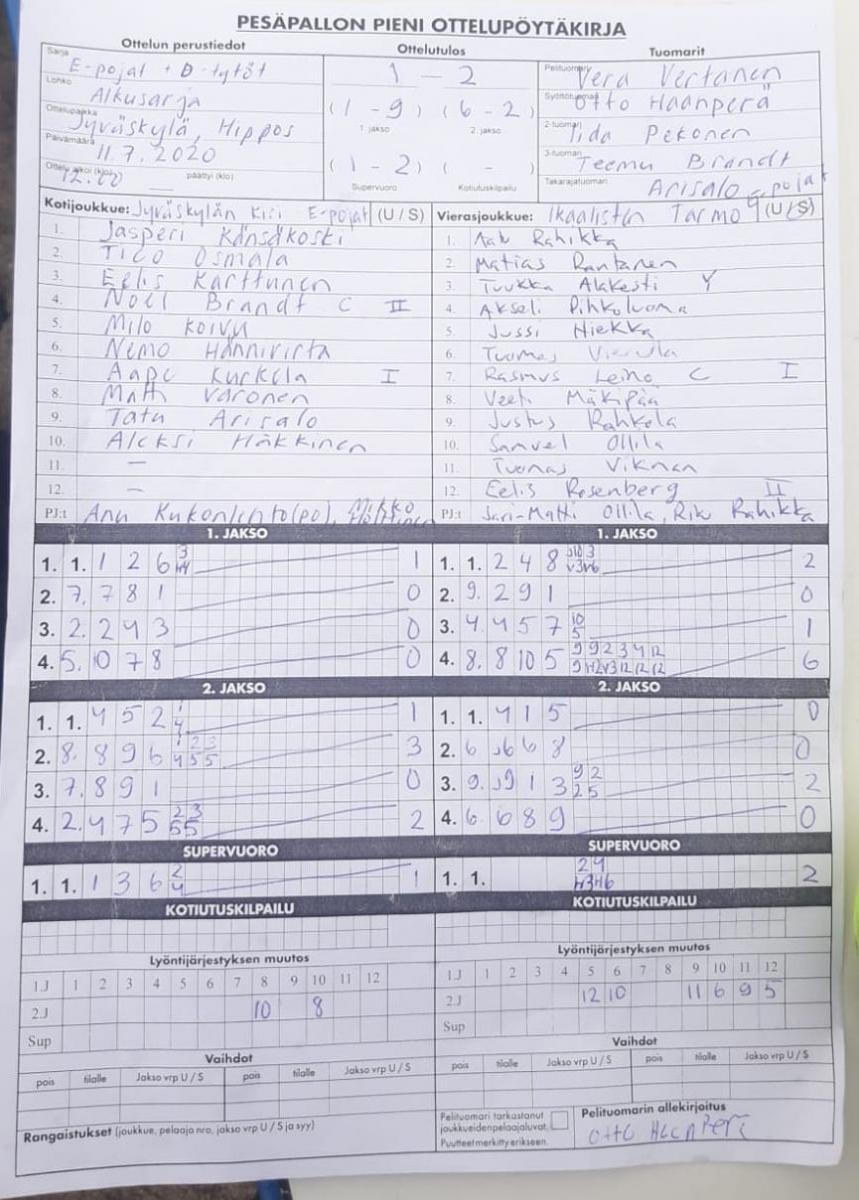 PESÄPALLON PIENI OTTELUPÖYTÄKIRJA
Ottelun perustiedot
Ottelutulos
Tuomarit
Sarja
E-pojat + D-tytöt
Lohko
Alkusarja
Ottelupaikka
Jyväskylä, Hippos
Päivämäärä
11.7.2020
Ottelu alkoi (klo) 12.00 päättyi (klo)
1 - 2
(1 - 9) (6 - 2)
1. jakso 2. jakso
(1 - 2) ( - )
Supervuoro Kotiutuskilpailu
Pelituomari Vera Vertanen
Syöttötuomari Otto Haanperä
2-tuomari Iida Pekonen
3-tuomari Teemu Brandt
Takarajatuomari Arisalo
Kotijoukkue: Jyväskylän Kiri E-pojat (U / S)
1. Jasperi Känsäkoski
2. Tico Osmala
3. Eelis Karttunen
4. Noel Brandt C II
5. Milo Koivu
6. Nemo Hännivirta
7. Aape Kurkela I
8. Matti Varonen
9. Tatu Arisalo
10. Aleksi Häkkinen
11. —
12. —
PJ:t Anu Kukonlehto(po), Mikko
Vierasjoukkue: Ikaalisten Tarmo E-pojat (U / S)
1. Aatu Rahikka
2. Matias Rantanen
3. Tuukka Alakesti Y
4. Akseli Pihkoluoma
5. Jussi Hiekka
6. Tuomas
7. Rasmus Leino C I
8. Veeti Mäkipää
9. Justus Rahkola
10. Samuel Ollila
11. Tuomas Vikman
12. Eelis Rosenberg II
PJ:t Jari-Matti Ollila, Riku Rahikka
1. JAKSO
1. 1. 1 2 6 3 1
2. 7. 7 8 1 0
3. 2. 2 4 3 0
4. 5. 10 7 8 0
1. JAKSO
1. 1. 2 4 8 2
2. 9. 2 9 1 0
3. 4. 4 5 7 10 5 1
4. 8. 8 10 5 9 9 2 3 4 12 6
2. JAKSO
1. 1. 4 5 2 1 4 1
2. 8. 8 9 6 1 2 3 4 5 5 3
3. 7. 8 9 1 0
4. 2. 4 7 5 2 3 5 5 2
2. JAKSO
1. 1. 4 1 5 0
2. 6 6 8 0
3. 9. 9 1 3 9 2 2 5 2
4. 6. 6 8 9 0
SUPERVUORO
1. 1. 1 3 6 2 4 1
SUPERVUORO
1. 1. 2 4 2
KOTIUTUSKILPAILU
KOTIUTUSKILPAILU
Lyöntijärjestyksen muutos
1J 1 2 3 4 5 6 7 8 9 10 11 12
2J 10 8
Sup
Lyöntijärjestyksen muutos
1J 1 2 3 4 5 6 7 8 9 10 11 12
2J 12 10 11 6 9 5
Sup
Vaihdot
pois tilalle Jakso vrp U / S pois tilalle Jakso vrp U / S
Vaihdot
pois tilalle Jakso vrp U / S pois tilalle Jakso vrp U / S
Rangaistukset (joukkue, pelaaja nro, jakso vrp U / S ja syy)
Pelituomari tarkastanut
joukkueiden pelaajaluvat.
Puutteet merkitty erikseen.
Pelituomarin allekirjoitus
Otto Haanperä